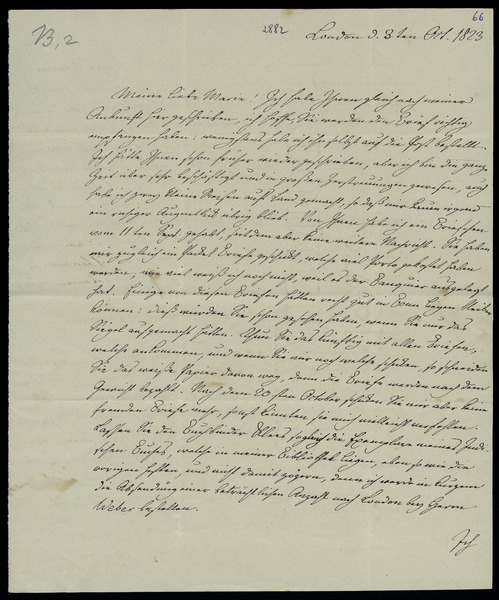 66
B, 2
2882
London d. 3ten Oct. 1823
Meine liebe Marie! Ich habe Ihnen gleich nach meiner
Ankunft hier geschrieben, ich hoffe, Sie werden den Brief richtig
empfangen haben: wenigstens habe ich ihn selbst auf die Post bestellt.
Ich hätte Ihnen schon früher wieder geschrieben, aber ich bin die ganze
Zeit über sehr beschäftigt und in großen Zerstreuungen gewesen, auch
habe ich zwey kleine Reisen aufs Land gemacht, so daß mir kaum irgend
ein ruhiger Augenblick übrig blieb. Von Ihnen habe ich ein Briefchen
vom 11ten Sept gehabt, seitdem aber keine weitere Nachricht. Sie haben
mir zugleich ein Packet Briefe geschickt, welche viel Porto gekostet haben
werden, wie viel weiß ich noch nicht, weil es der Banquier ausgelegt
hat. Einige von diesen Briefen hätten recht gut in Bonn liegen bleiben
können: dieß würden Sie schon gesehen haben, wenn Sie nur das
Siegel aufgemacht hätten. Thun Sie das künftig mit allen Briefen,
welche ankommen, und wenn Sie mir noch welche schicken, so schneiden
Sie das weiße Papier davon weg, denn die Briefe werden nach dem
Gewicht bezahlt. Nach dem 20sten October schicken Sie mir aber keine
fremden Briefe mehr, sonst könnten sie mich vielleicht verfehlen.
Lassen Sie den Buchbinder sogleich die Exemplare meines Indi-
schen Buches, welche in meiner Bibliothek liegen, eben so wie die
vorigen heften, und nicht damit zögern, denn ich werde in kurzem
die Absendung einer beträchtlichen Anzahl nach London bey Herrn
Weber bestellen.
Ich